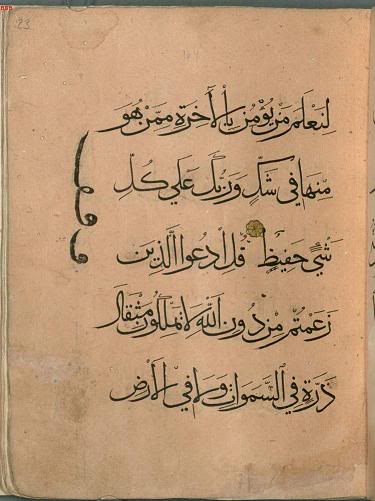 23
لِنَعْلَمَ مَنْ يُؤْمِنُ بِالْآخِرَةِ مِمَّنْ هُوَ
مِنْهَا فِي شَكٍّ وَرَبُّكَ عَلَى كُلِّ
شَيْءٍ حَفِيظٌ قُلِ ادْعُوا الَّذِينَ
زَعَمْتُمْ مِنْ دُونِ اللَّهِ لَا يَمْلِكُونَ مِثْقَالَ
ذَرَّةٍ فِي السَّمَوَاتِ وَلَا فِي الْأَرْضِ